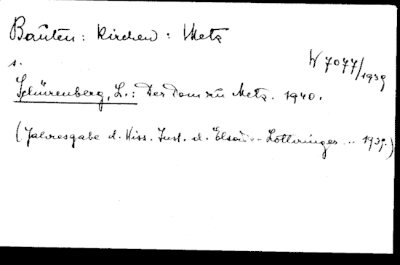 Bauten: Kirchen: Metz
W 7077/1939
s.
Schürenberg, L.: Der Dom zu Metz. 1940.
(Jahresgabe d. Wiss. Inst. d. Elsass-Lothringer .. 1939.)